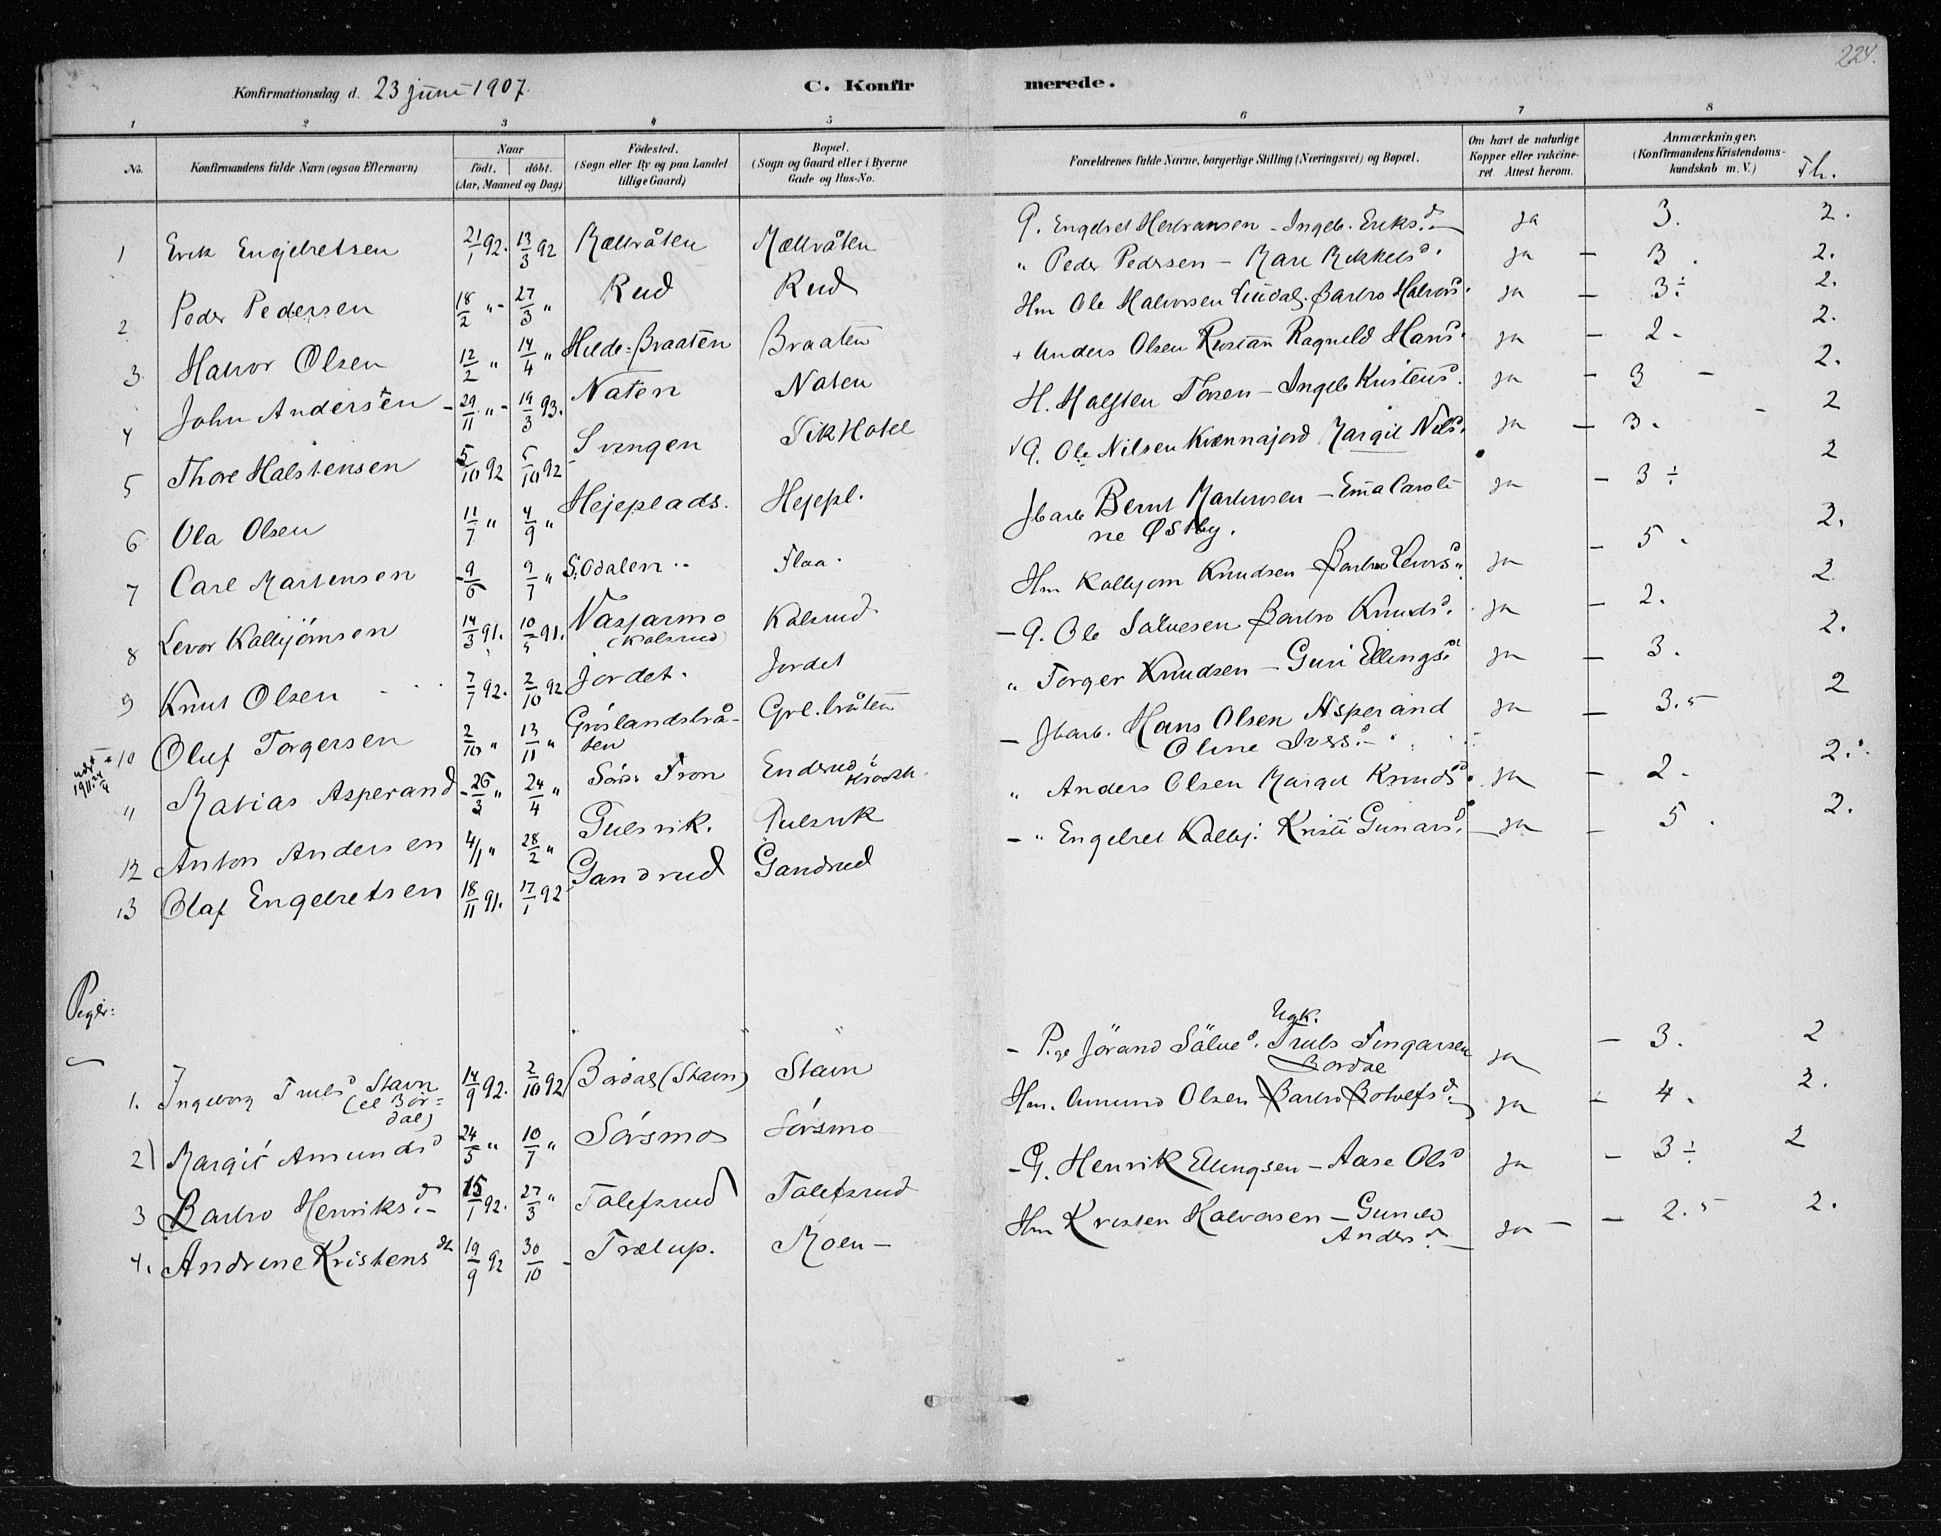 224.
Konfirmationsdag d. 23 juni 1907. C. Konfirmerede.
1 2 3 4 5 6 7 8
No. Konfirmandens fulde Navn (ogsaa Efternavn) Naar født. døbt. (Aar, Maaned og Dag) Fødested. (Sogn eller By og paa Landet tillige Gaard) Bopæl. (Sogn og Gaard eller i Byerne Gade og Hus-No. Forældrenes fulde Navne, borgerlige Stilling (Næringsvei) og Bopæl. Om havt de naturlige Kopper eller vakcineret. Attest herom. Anmærkninger. (Konfirmandens Kristendomskundskab m. V.) Fl.
1 Erik Engebretsen 21/1 92. 13/3 92 Mællråten G. Engebret Herbransen - Ingeb. Eriksd. ja 3. 2.
2 Peder Pedersen 18/2 " - 27/3 " Rud Rud " Peder Pedersen - Mari Mikkelsd. ja - 3. 2.
3 Halvor Olsen 12/2 " 14/4 " Hilde-Braaten Braaten Hm Ole Halvorsen Barbro Halvorsd. ja - 3÷ 2.
4 John Andersen - 29/11 " - 19/3 93. Naten Naten Anders Olsen Ragnild Hansd. ja - 2. 2.
5 Thore Halstensen 5/10 92 5/10 92 Svingen Sik Hotel H. Halsten Toresen - Ingeb Kristensd. ja - 3 - 2.
6 Ola Olsen 11/7 " 4/9 " Hejeplads. Hejepl. G. Ole Nilsen Kvennajord Margit Nilsd. ja - 3. - 2
7 Carl Martinsen - 9/6 9/7 " S. Odalen.. Flaa. Jbarb Bernt Martinsen - Ema Caroline Østby. ja - 3÷ 2
8 Levor Kolbjørnsen 14/3 91. 10/5 91. Nasjarmo (Kolsrud) Kolsrud Hm Kolbjorn Knudsen Barbro Levorsd. ja - 5. 2.
9 Knut Olsen 7/7 92. 2/10 92 Jordet. Jordet - G. Ole Salvesen Barbro Knudsd. ja - 2. 2.
10 Oluf Torgersen 2/10 " 13/11 " Grislandsbråten Grl. bråten " Torger Knudsen - Guri Ellingsd ja - 3. 2.
11 Matias Asperand - 26/3 " 24/4 " Søndr Fron Enderud i Krødsh. - Jbarb. Hans Olsen Asperand Oline Iversd. ja - 3.5 2
12 Anton Andersen 4/1 " 28/2 " Gulsvik. Gulsvik " Anders Olsen Margit Knudsd. ja - 2. 2.
13 Olaf Engebretsen 18/11 91. 17/1 92 Gandrud Gandrud - " Engebret Kolbj. Kristi Gunarsd. - ja - 5. 2.
Piger:
1. Ingeborg Trulsd Stavn (el Bördal) 14/9 92. 2/10 92 Bördal (Stavn) Stavn - Pige Jörand Sälved. Ugk. Truls Fingarsen Bordal ja - 3. 2
2) Margit Amundsd 24/5 " 10/7 " Sörsmo Sörsmo Hm. Amund Olsen Barbro Botolfsd. ja - 4. 2.
3 Barbro Henriksd. - 15/1 92. 27/3 " Tolefsrud Tolefsrud - G. Henrik Ellingsen - Aase Olsd ja - 3÷ 2
4. Andrine Kristensdt 19/9 92 30/10 - Trælup. Moen - Hm Kristen Halvorsen - Gunild Andersd. - ja - 2.5 2.